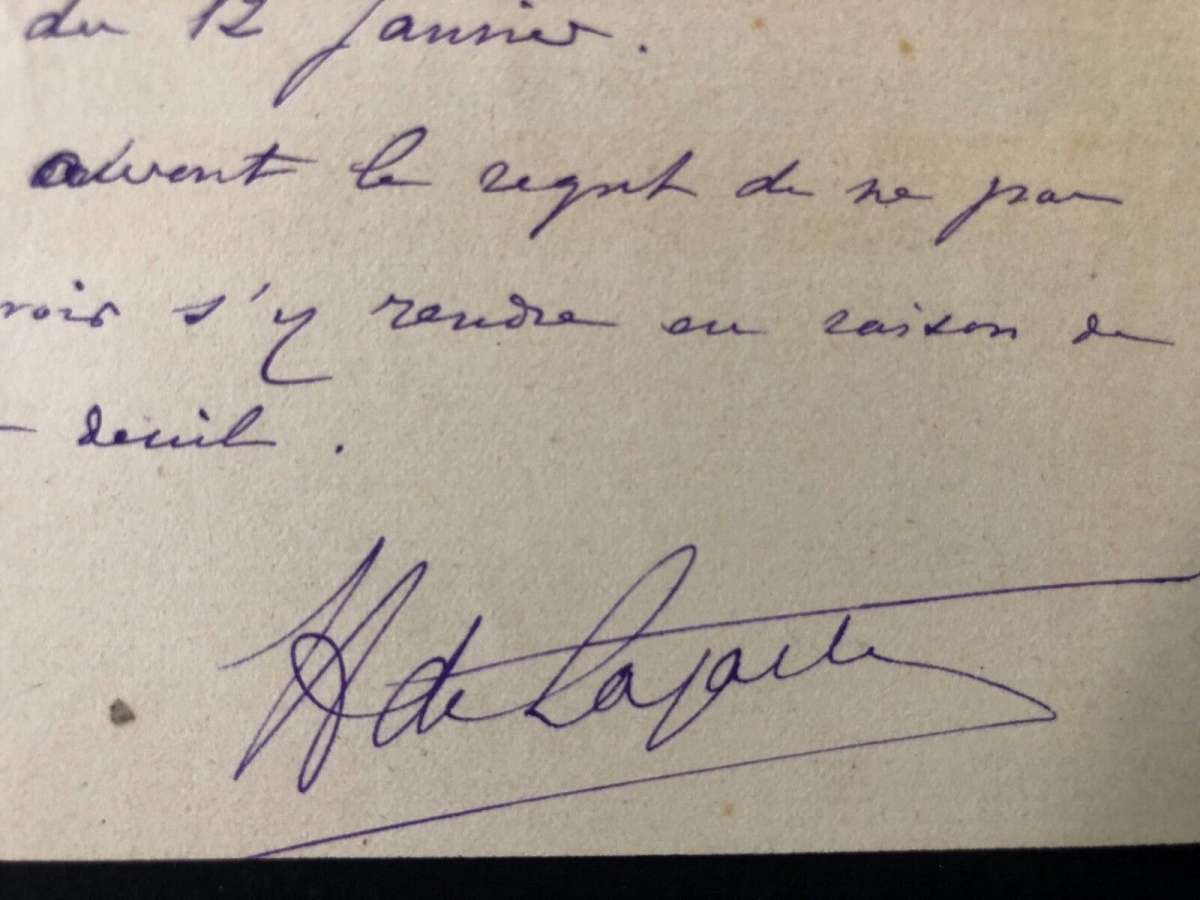 du 12 Janvier.
le regret de ne pas
voir s'y rendre en raison de
deuil.
H de Lajarte